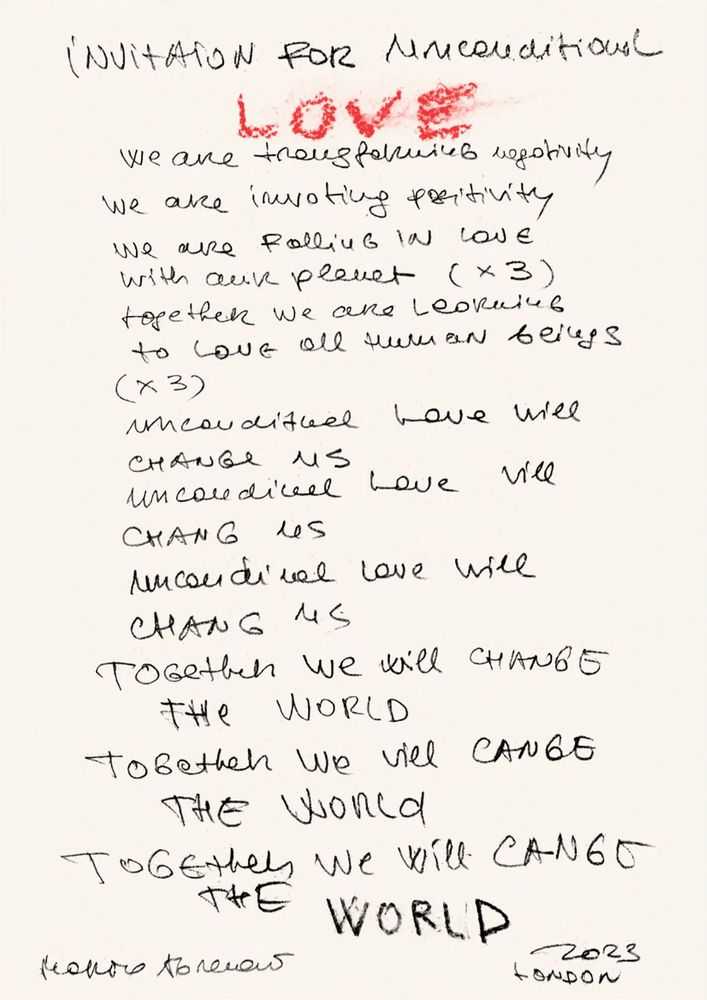 iNVitAiON FOR Unconditional
LOVE
We are transforming negativity
We are invoting positivity
We are FalliNG IN LOVE
With our planet (x3)
together We are LearNiNG
to LOVE all HumAN beings
(x3)
uncondituel Love Will
CHANGE US
uncondinel Love vill
CHANG US
uncondinal Love Will
CHANG US
TOGether We Will CHANGE
THe WORLD
TOGether We vill CANGE
THE WORLd
TOGEther We Will CANGE
THE WORLD
2023
LONDON